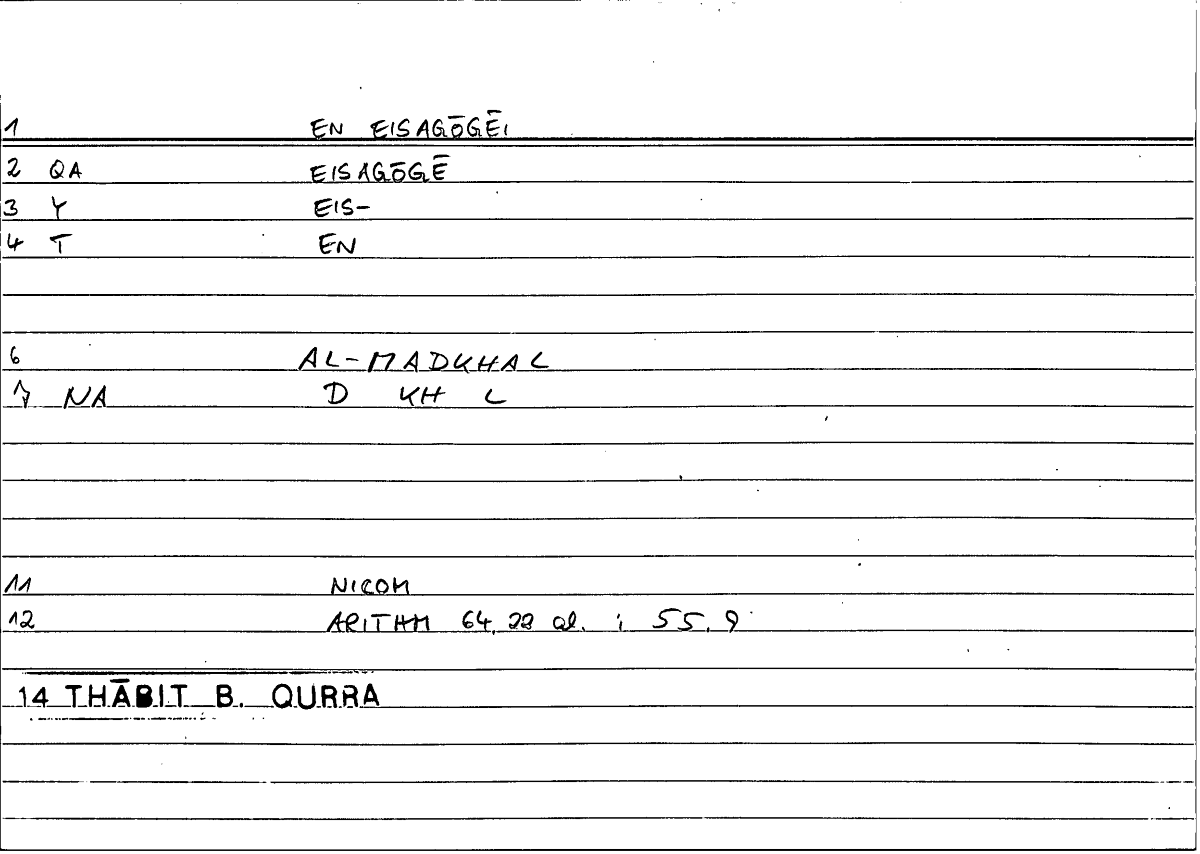 1 EN EISAGŌGĒI
2 QA EISAGŌGĒ
3 Y EIS-
4 T EN
6 AL-MADKHAL
7 NA D KH L
11 NICOM
12 ARITHM 64,22 al. ; 55,9
14 THĀBIT B. QURRA